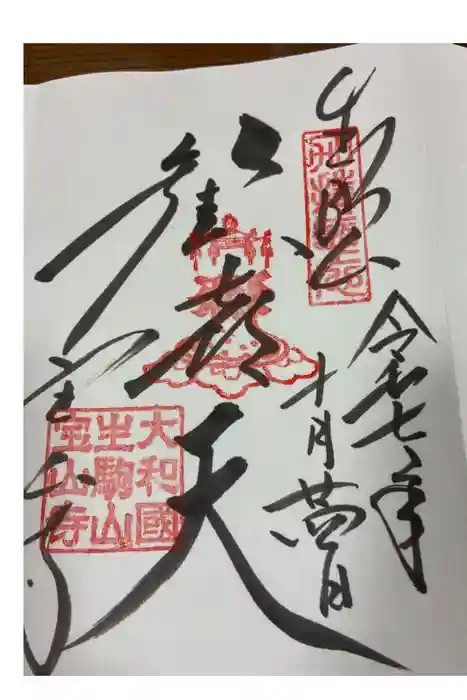 生駒山
令和七年
十月廿四日
歓喜天
宝山寺
大和國
生駒山
宝山寺